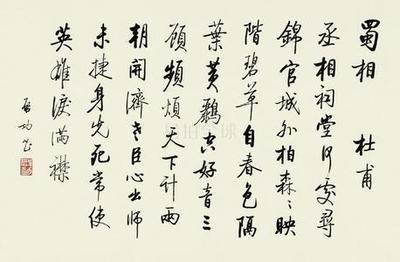 蜀相 杜甫
丞相祠堂何處尋
錦官城外柏森々映
階碧草自春色隔
葉黄鸝空好音三
顧頻煩天下計兩
朝開濟老臣心出師
未捷身先死常使
英雄淚滿襟
启功书